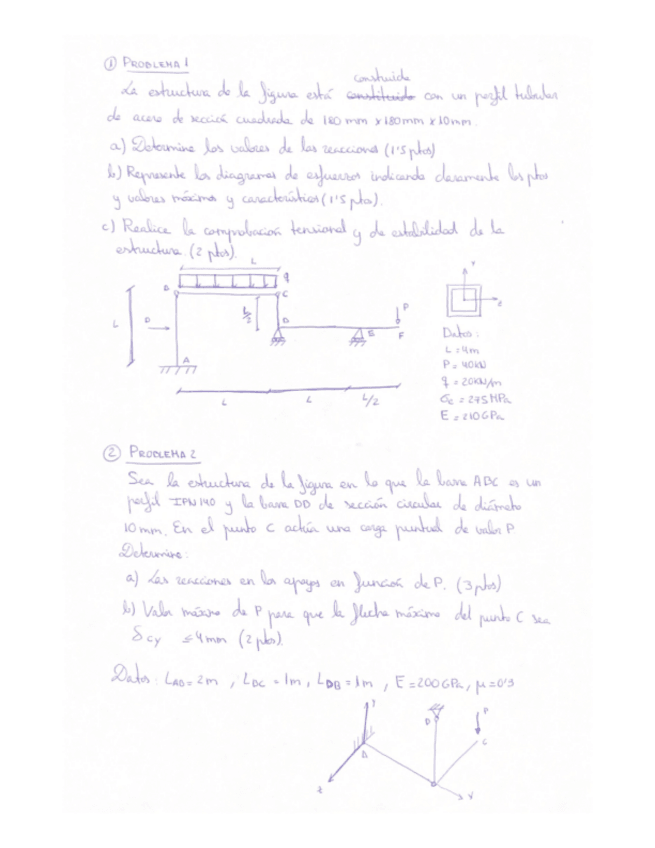 ① PROBLEMA 1
construida
La estructura de la figura está constituido con un perfil tubular
de acero de sección cuadrada de 180 mm x 180 mm x 10 mm.
a) Determine los valores de las reacciones (1'5 ptos)
b) Represente los diagramas de esfuerzos indicando claramente los ptos
y valores máximos y característicos (1'5 ptos).
c) Realice la comprobación tensional y de estabilidad de la
estructura. (2 ptos).
L
q
B
C
L
P
L/2
D
E
F
P
A
L
L
L/2
Y
Z
Datos:
L = 4m
P = 40kN
q = 20kN/m
σe = 275MPa
E = 210GPa
② PROBLEMA 2
Sea la estructura de la figura en la que la barra ABC es un
perfil IPN 140 y la barra BD de sección circular de diámetro
10 mm. En el punto C actúa una carga puntual de valor P
Determine:
a) Las reacciones en los apoyos en función de P. (3 ptos)
b) Valor máximo de P para que la flecha máxima del punto C sea
δcy ≤ 4 mm (2 ptos).
Datos: LAB = 2m, LBC = 1m, LDB = 1m, E = 200GPa, μ = 0'3
Y
D
P
A
C
Z
X